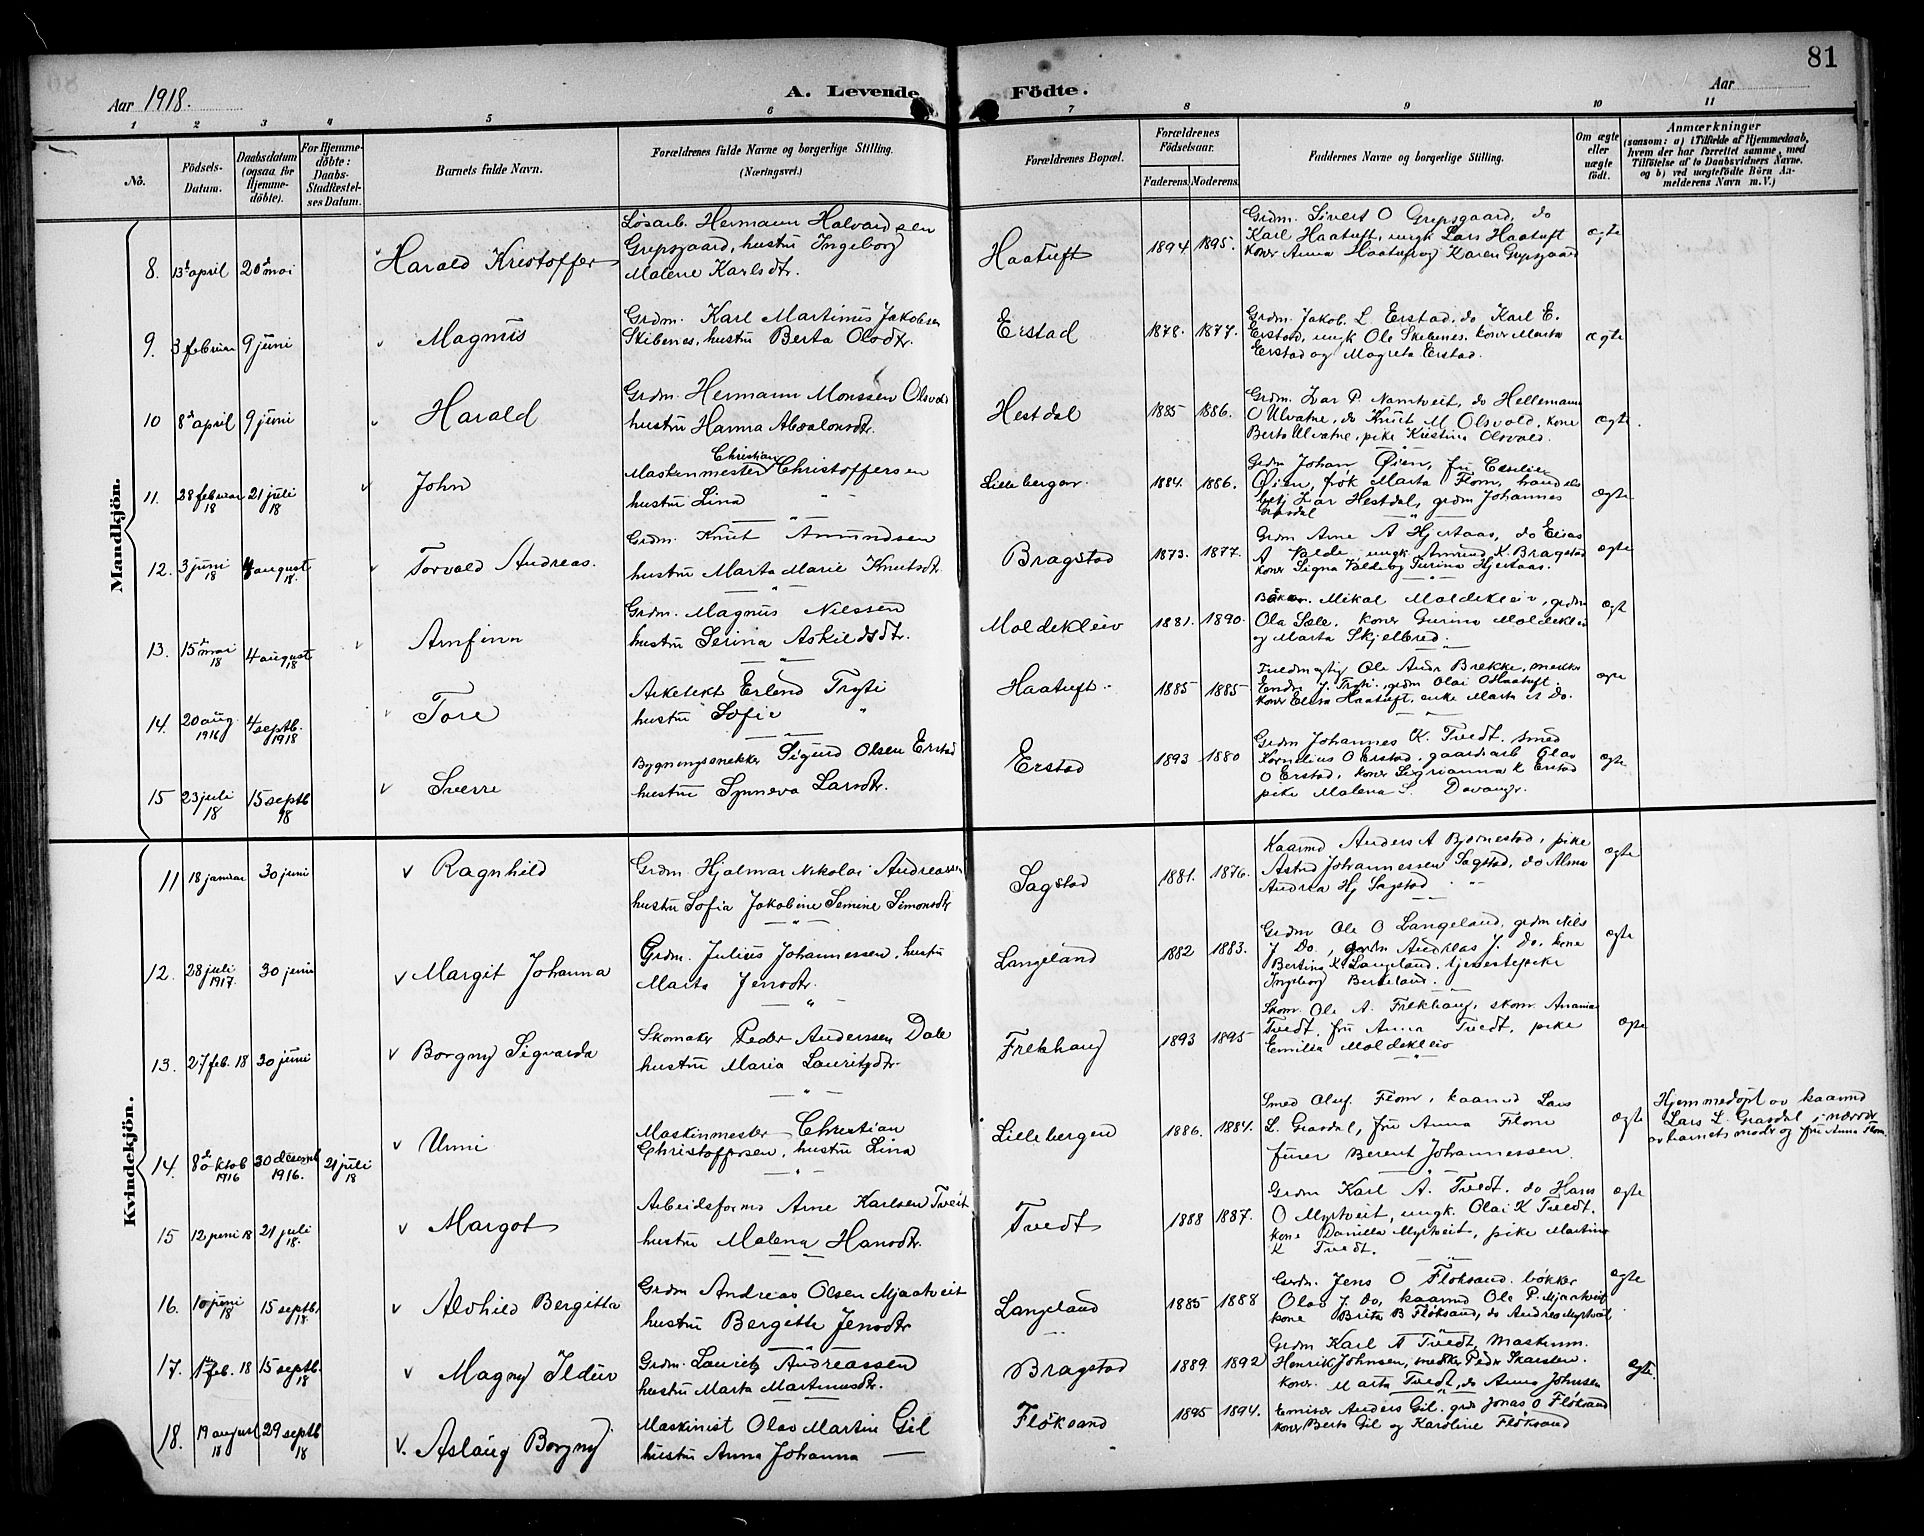 81
Aar 1918.
A. Levende Födte.
Aar
1 2 3 4 5 6 7 8 9 10 11
No.
Födsels-Datum.
Daabsdatum (ogsaa for Hjemme-döbte).
For Hjemme-döbte: Daabs-Stadfæstel-ses Datum.
Barnets fulde Navn.
Forældrenes fulde Navne og borgerlige Stilling. (Næringsvei.)
Forældrenes Bopæl.
Forældrenes Födselsaar.
Faderens. Moderens.
Faddernes Navne og borgerlige Stilling.
Om ægte eller uægte födt.
Anmærkninger
(saasom: a) i Tilfælde af Hjemmedaab,
hvem der har forrettet samme, med
Tilföielse af to Daabsvidners Navne.
og b) ved uægtefödte Börn An-
melderens Navn m. V.)
Mandkjön.
8. 13d april 20d mai Harald Kristoffer
Løsarb. Hermann Halvardsen
Gripsgaard, hustru Ingeborg
Malene Karlsdtr.
Haatuft 1894 1895.
Grdm. Sivert O Gripsgaard, do
Karl Haatuft, ungk Lars Haatuft
koner Anna Haatuft og Karen Gripsgaard
ægte
9. 3 februar 9 juni Magnus
Grdm. Karl Martinus Jakobsen
Skibenes, hustru Berta Olsdtr.
Erstad 1878. 1877.
Grdm. Jakob L Erstad, do Karl E.
Erstad, ungk Ole Skibenes, koner Marta
Erstad og Magreta Erstad.
ægte
10 8d april 9 juni Harald
Grdm. Hermann Monssen Olsvold
hustru Hanna Absalonsdtr.
Hestdal 1885 1886.
Grdm. Ivar P. Namtveit, do Hellemann
O Ulvatne, do Knut M. Olsvold, kone
Berta Ulvatne, pike Kristina Olsvold.
ægte.
11. 28 februar 18 21 juli 18 John
Maskinmester Christian Christoffersen
hustru Lina "
Lillebergen 1884. 1886.
Grdm Johan Øien, fru Cecilie
Øien, frøk Marta Flom, handels
betj Ivar Hestdal, grdm Johannes
Grasdal
ægte
12. 3 juni 18 4 august 18. Torvald Andreas.
Grdm. Knut Amundsen
hustru Marta Marie Knutsdtr.
Bragstad 1873. 1877.
Grdm Arne A Hjertaas, do Elias
A Valde, ungk Amund K. Bragstad
koner Signa Valde og Gurina Hjertaas.
ægte
13. 15d mai 18 4 august 18 Arnfinn
Grdm. Magnus Nilssen
hustru Serina Askildsdtr.
Moldekleiv 1881. 1890.
Mikal Moldekleiv, grdm
Ola Sele, koner Gurina Moldekleiv
og Marta Skjelbred.
ægte
14. 20 aug 1916 4 septb. 1918 Tore
Arkitekt Erlend Tryti
hustru Sofie "
Haatuft 1885 1885
Fuldmegtig Ole Andr Brekke, snekker
Endr. J. Tryti, grdm Olai O Haatuft.
koner Elisa Haatuft, enke Marta A Do.
ægte
15 23 juli 18 15 septb 18 Sverre
Bygningssnekker Sigurd Olsen Erstad
hustru Synneva Larsdtr.
Erstad 1893 1880
Grdm Johannes K. Tvedt. smed
Kornelius O Erstad, gaardsarb Olav
O Erstad, koner Sigrianna K Erstad
pike Malena S. Davanger.
ægte
Kvindekjön.
11 18 januar 30 juni Ragnhild
Grdm. Hjalmar Nikolai Andreassen
hustru Sofia Jakobine Semine Simonsdtr
Sagstad 1881. 1876.
Kaarmd Anders A Bjørnestad, pike
Astrid Johannessen Sagstad, do Alma
Andrea Hj Sagstad
ægte
12. 28 juli 1917. 30 juni Margit Johanna
Grdm. Julius Johannessen, hustru
Marta Jensdtr.
Langeland 1882 1883.
Grdm Ole O Langeland, grdm Nils
J Do., grdm Andreas J. do, kone
Bertina K Langeland, tjenestepike
Ingeborg Berkeland.
ægte
13. 27 feb. 18 30 juni Borgny Sigvarda
Skomaker Peder Anderssen Dale
hustru Maria Lauritzdtr.
Frekhaug 1893 1895
Skom. Ole A. Frekhaug, skom. Ananias
Tvedt, fru Anna Tvedt, pike
Emilia Moldekleiv
ægte
14. 8d oktob 1916 30 desemb 1916. 21 juli 18 Unni
Maskinmester Christian
Christoffersen, hustru Lina
Lillebergen 1886. 1884.
Smed Oluf Flom, kaarmd Lars
L. Grasdal, fru Anna Flom
furer Berent Johannessen.
ægte
Hjemmedøpt av kaarmd
Lars L. Grasdal i nærvær
av barnets moder og fru Anna Flom.
15 12 juni 18 21 juli 18. Margot
Arbeidsformd Arne Karlsen Tveit
hustru Malena Hansdtr.
Tvedt 1888 1887.
Grdm Karl A. Tvedt, do Hans
O Myrtveit, ungk. Olai K Tvedt.
kone Daniella Myrtveit, pike Martina
K Tvedt.
ægte
16. 10 juni 18 15 septb. 18. Alvhild Bergitta
Grdm Andreas Olsen Mjaatveit
hustru Bergitte Jensdtr
Langeland 1885 1888
Grdm. Jens O Fløksand. bøkker
Olav J. Do, kaarmd Ole P. Mjaatveit
kone Brita B Fløksand, do Andrea Myrtveit
ægte
17. 1d feb. 18 15 septb. 18 Magny Ildur
Grdm. Lauritz Andreassen
hustru Marta Martinusdtr.
Bragstad 1889 1892
Grdm Karl A Tvedt, Maskinm.
Henrik Johnsen, snedker Peder Skarsten.
koner. Marta Tvedt, do Anna Johnsen
ægte.
18. 19 august 18 29 septb 18 Aslaug Borgny
Maskinist Olav Martin Gil
hustru Anna Johanna
Fløksand 1895 1894.
Emissær Anders Gil. grd Jonas O Fløksand
koner Berta Gil og Karoline Fløksand